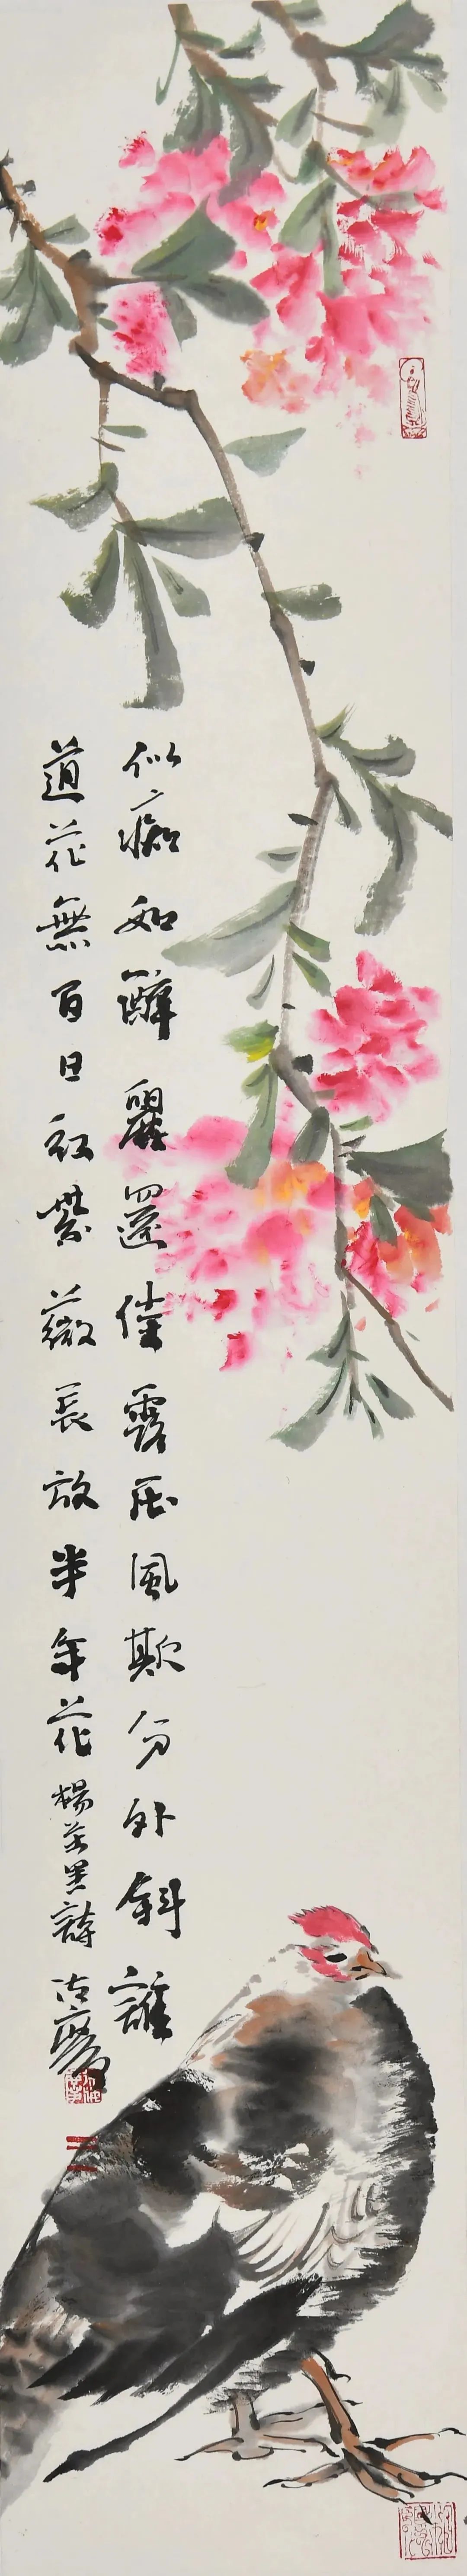 似痴如醉麗還佳露压風欺分外斜誰
道花無百日紅紫薇長放半年花
楊萬里詩